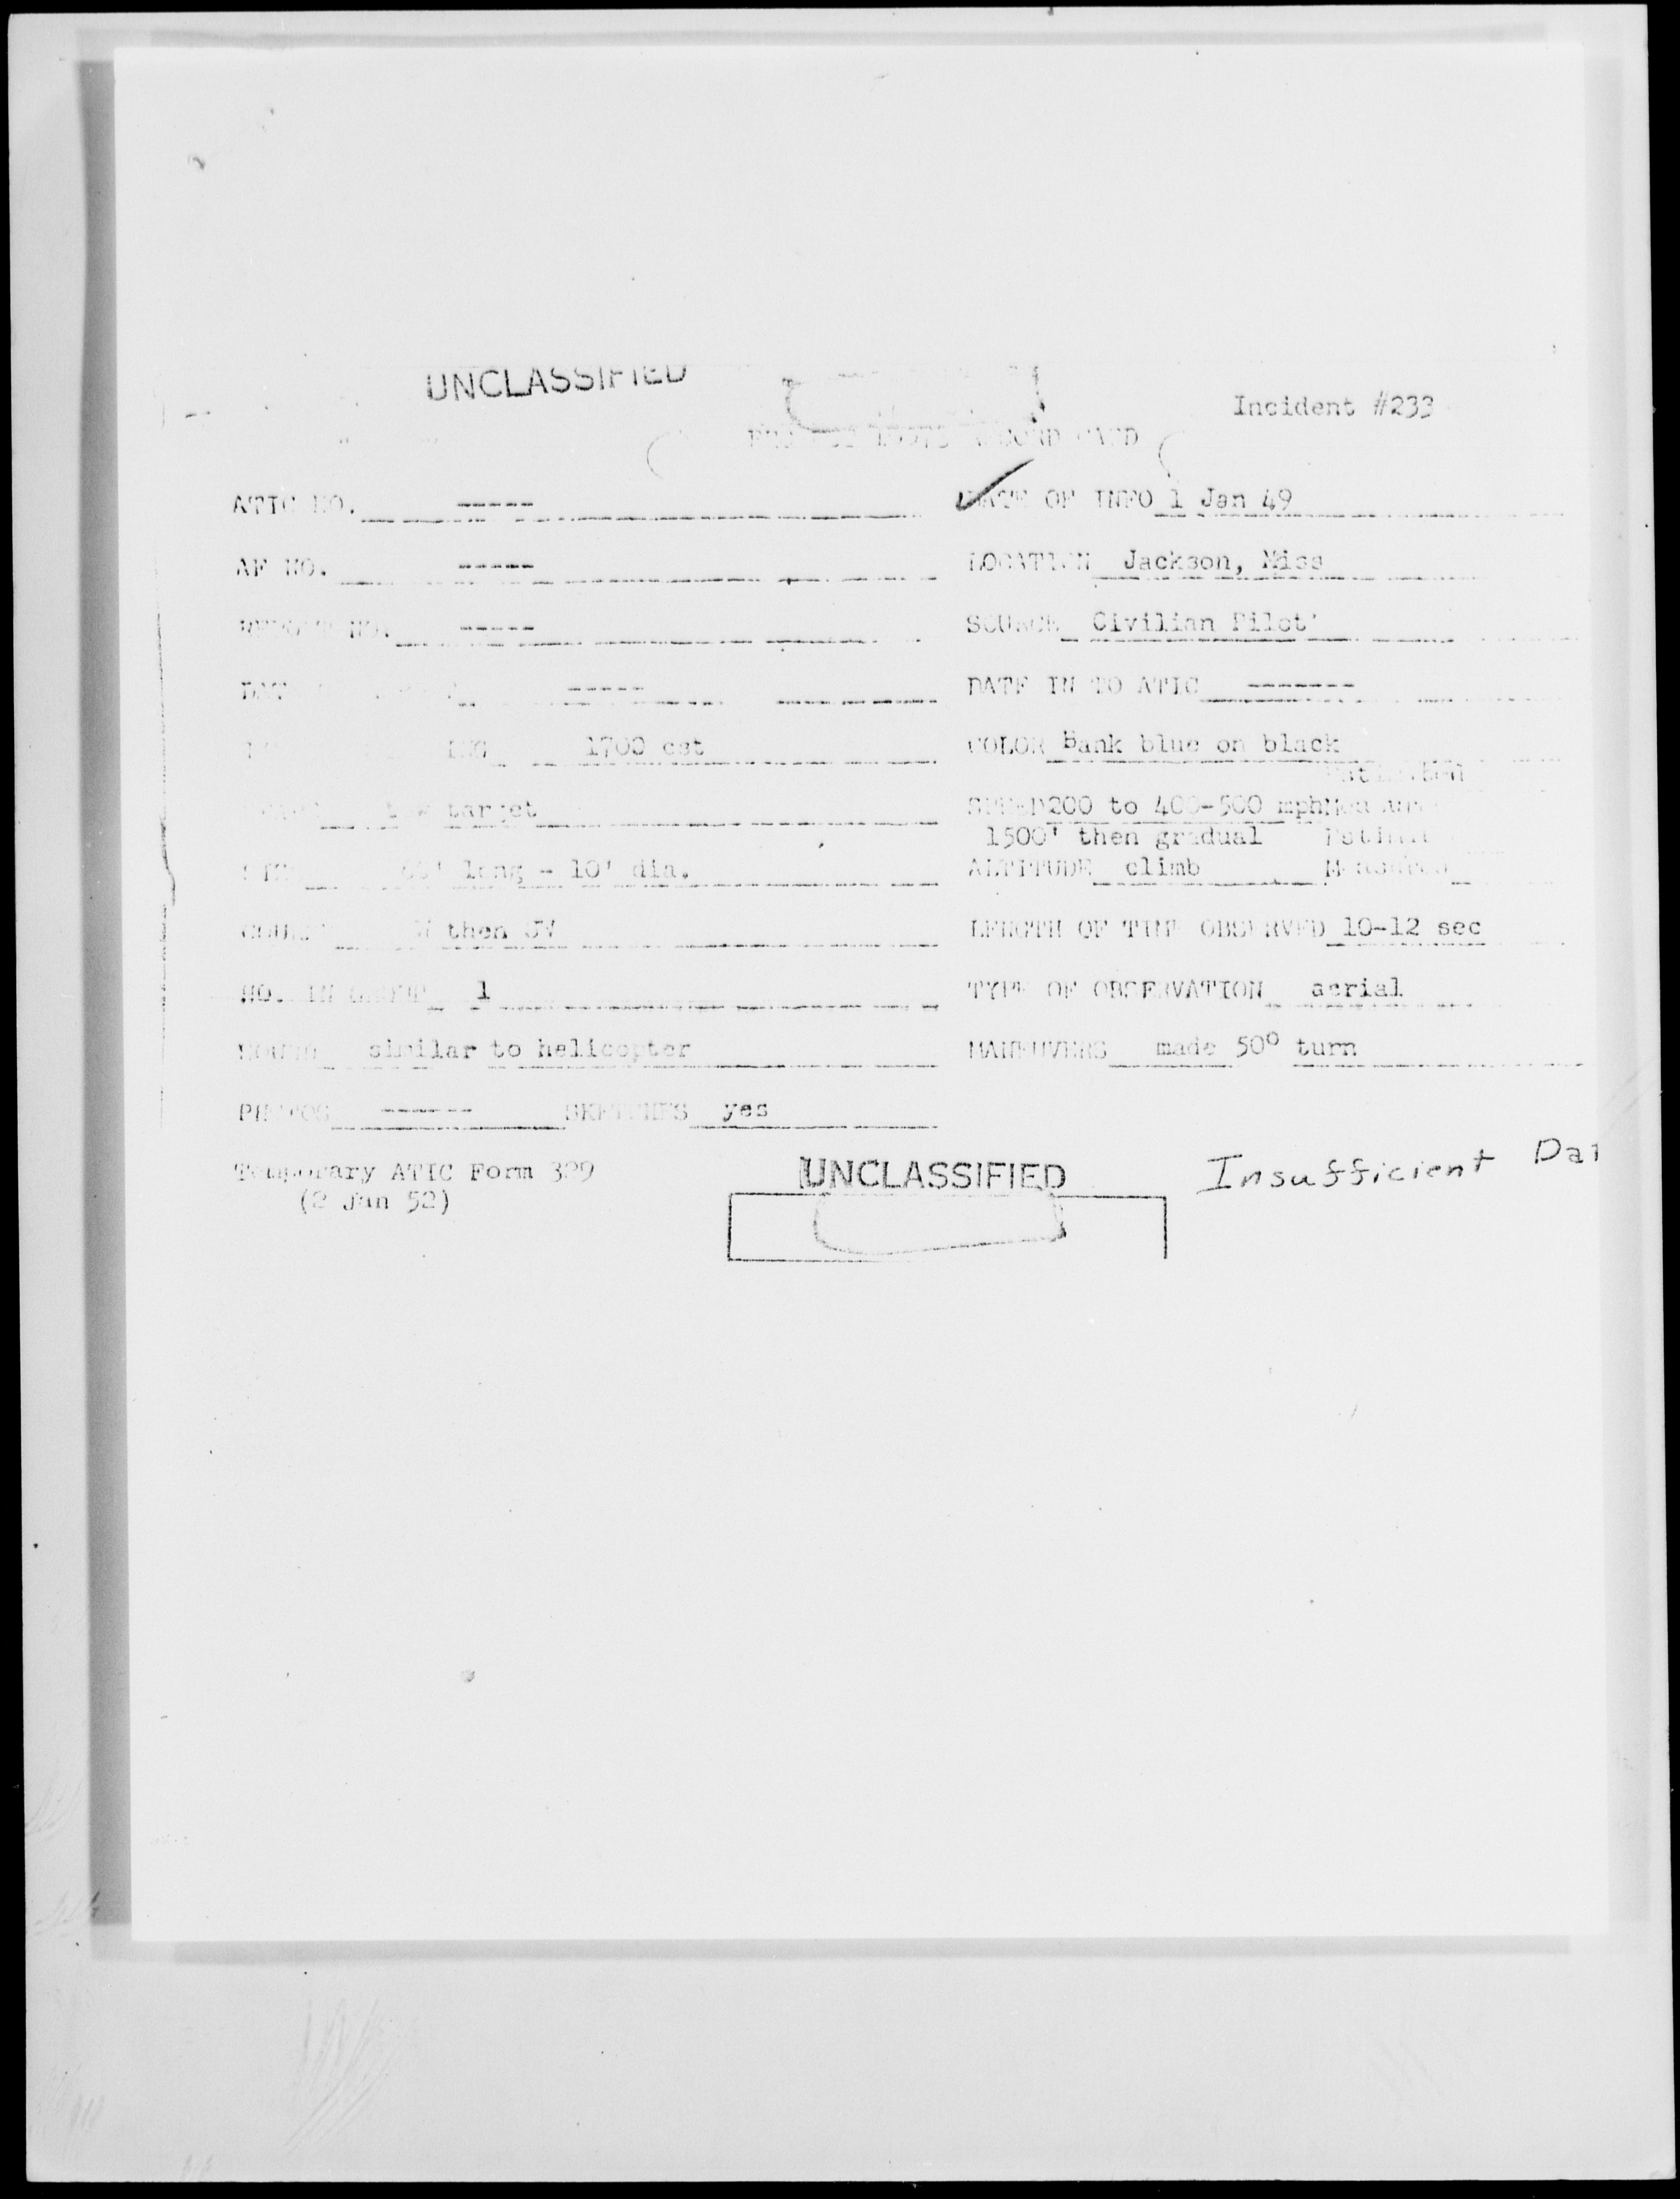 UNCLASSIFIED
Incident #233
RECORD CARD
ATIC NO. ----- DATE OF INFO 1 Jan 49
AF NO. ----- LOCATION Jackson, Miss
REPORT NO. ----- SOURCE Civilian Pilot
----- DATE IN TO ATIC -------
1700 cst COLOR Bank blue on black
Estimated
target SPEED 200 to 400-500 mph
1500' then gradual
long - 10' dia. ALTITUDE climb Measured
COURSE then SW LENGTH OF TIME OBSERVED 10-12 sec
NO. IN GROUP 1 TYPE OF OBSERVATION aerial
SOUND similar to helicopter MANEUVERS made 50° turn
PHOTOS ------ SKETCHES yes
Temporary ATIC Form 329 UNCLASSIFIED Insufficient Dat
(2 Jan 52)